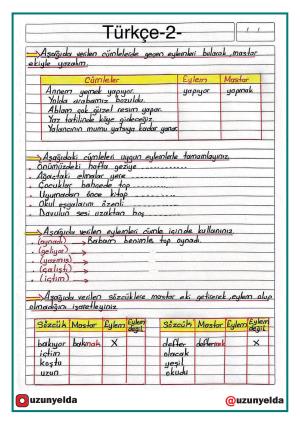 Türkçe-2-
Aşağıda verilen cümlelerde geçen eylemleri bularak, mastar
ekiyle yazalım.
Cümleler Eylem Mastar
Annem yemek yapıyor. yapıyor yapmak
Yolda arabamız bozuldu.
Ablam çok güzel resim yapar.
Yaz tatilinde köye gideceğiz.
Yalancının mumu yatsıya kadar yanar.
Aşağıdaki cümleleri uygun eylemlerle tamamlayınız.
Önümüzdeki hafta geziye
Ağaçtaki elmalar yere
Çocuklar bahçede top
Uyumadan önce kitap
Okul eşyalarım özenli
Davulun sesi uzaktan hoş
Aşağıda verilen eylemleri cümle içinde kullanınız.
(oynadı) Babam benimle top oynadı.
(geliyor)
(yazmış)
(çalıştı)
(içtim)
Aşağıda verilen sözcüklere mastar eki getirerek, eylem olup
olmadığını işaretleyiniz.
Sözcük Mastar Eylem Eylem değil Sözcük Mastar Eylem Eylem değil
bakıyor bakmak X defter deftermek X
içtim olacak
koştu yeşil
uzun okudu
uzunyelda @uzunyelda